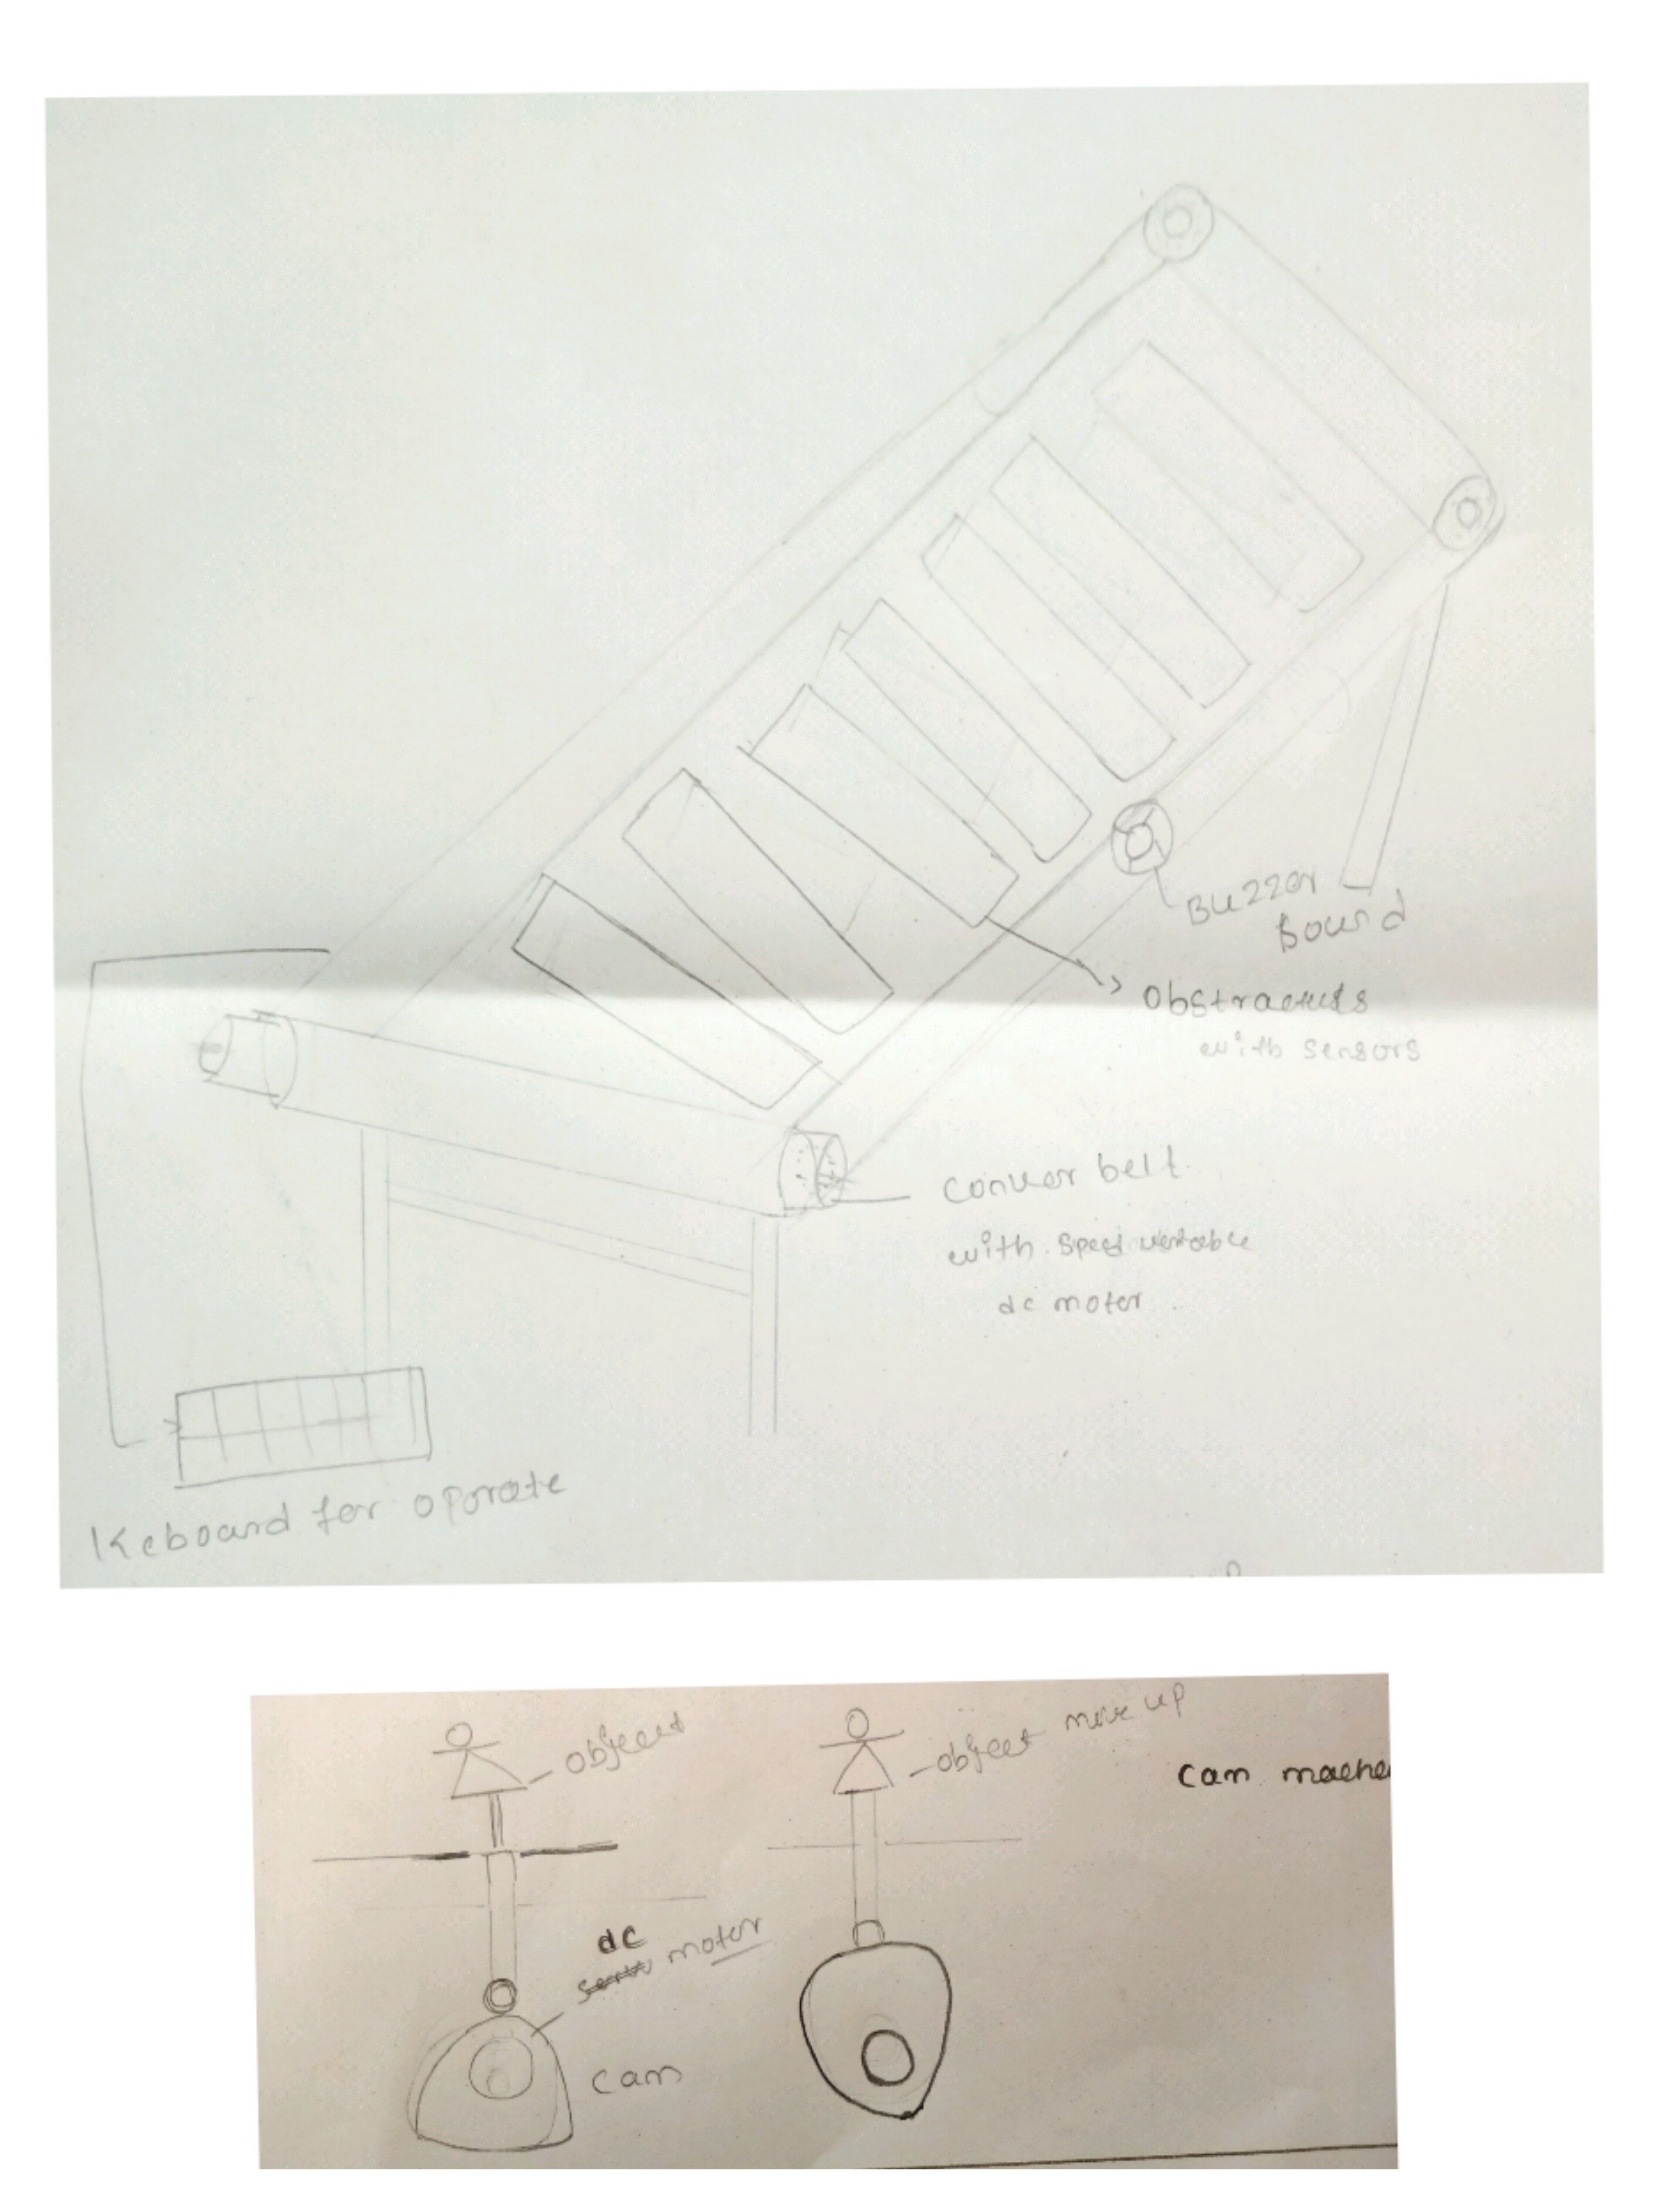 Buzzer
sound
Obstracules
with sensors
Conver belt
with speed veriable
dc motor
Keboard for oporate
object
object move up
cam mache
dc
servo motor
cam